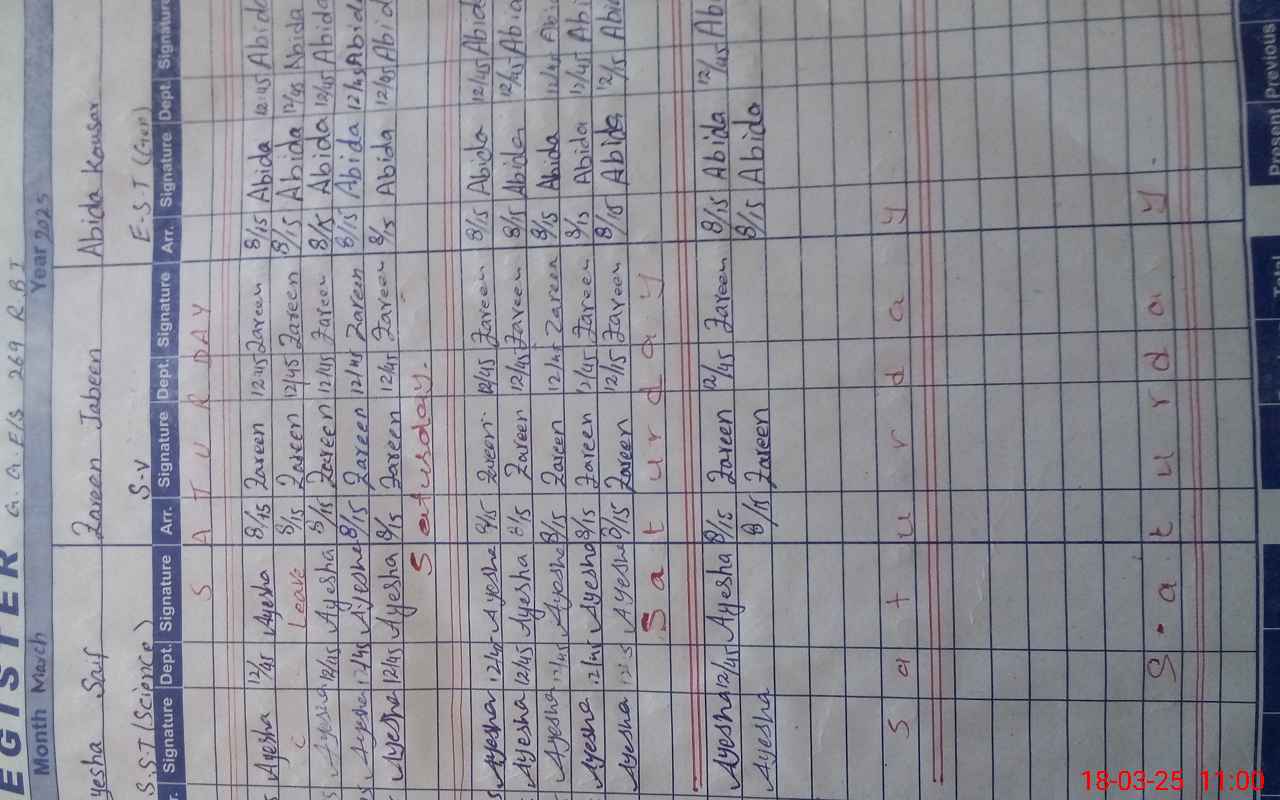 EGISTER G.G.E/S 269 R.B I
Month March Year 2025
yesha Saif Zareen Jabeen Abida Kousar
S.S.T (Science) S-V E-S-T (Gen)
Signature Dept. Signature Arr. Signature Dept. Signature Arr. Signature Dept. Signature
S A T U R DAY
Ayesha 12/45 Ayesha 8/15 Zareen 12:45 Zareen 8/15 Abida 12:45 Abida
Leave 8/15 Zareen 12/45 Zareen 8/15 Abida 12/45 Abida
Ayesha 12/45 Ayesha 8/15 Zareen 12/45 Zareen 8/15 Abida 12/45 Abida
Ayesha 12/45 Ayesha 8/15 Zareen 12/45 Zareen 8/15 Abida 12/45 Abida
Ayesha 12/45 Ayesha 8/15 Zareen 12/45 Zareen 8/15 Abida 12/45 Abida
Satusday.
Ayesha 12/45 Ayesha 8/15 Zareen 12/45 Zareen 8/15 Abida 12/45 Abid
Ayesha 12/45 Ayesha 8/15 Zareen 12/45 Zareen 8/15 Abida 12/45 Abi
Ayesha 12/45 Ayesha 8/15 Zareen 12/45 Zareen 8/15 Abida 12/45 Abi
Ayesha 12/45 Ayesha 8/15 Zareen 12/45 Zareen 8/15 Abida 12/45 Abi
Ayesha Ayesha 8/15 Zareen 12/15 Zareen 8/15 Abida 12/15 Abi
S a t u r d a y
Ayesha 12/45 Ayesha 8/15 Zareen 12/45 Zareen 8/15 Abida 12/45 Abi
Ayesha 8/15 Zareen 8/15 Abida
S a t u r d a y
S a t u r d a y
Total Present Previous
18-03-25 11:00